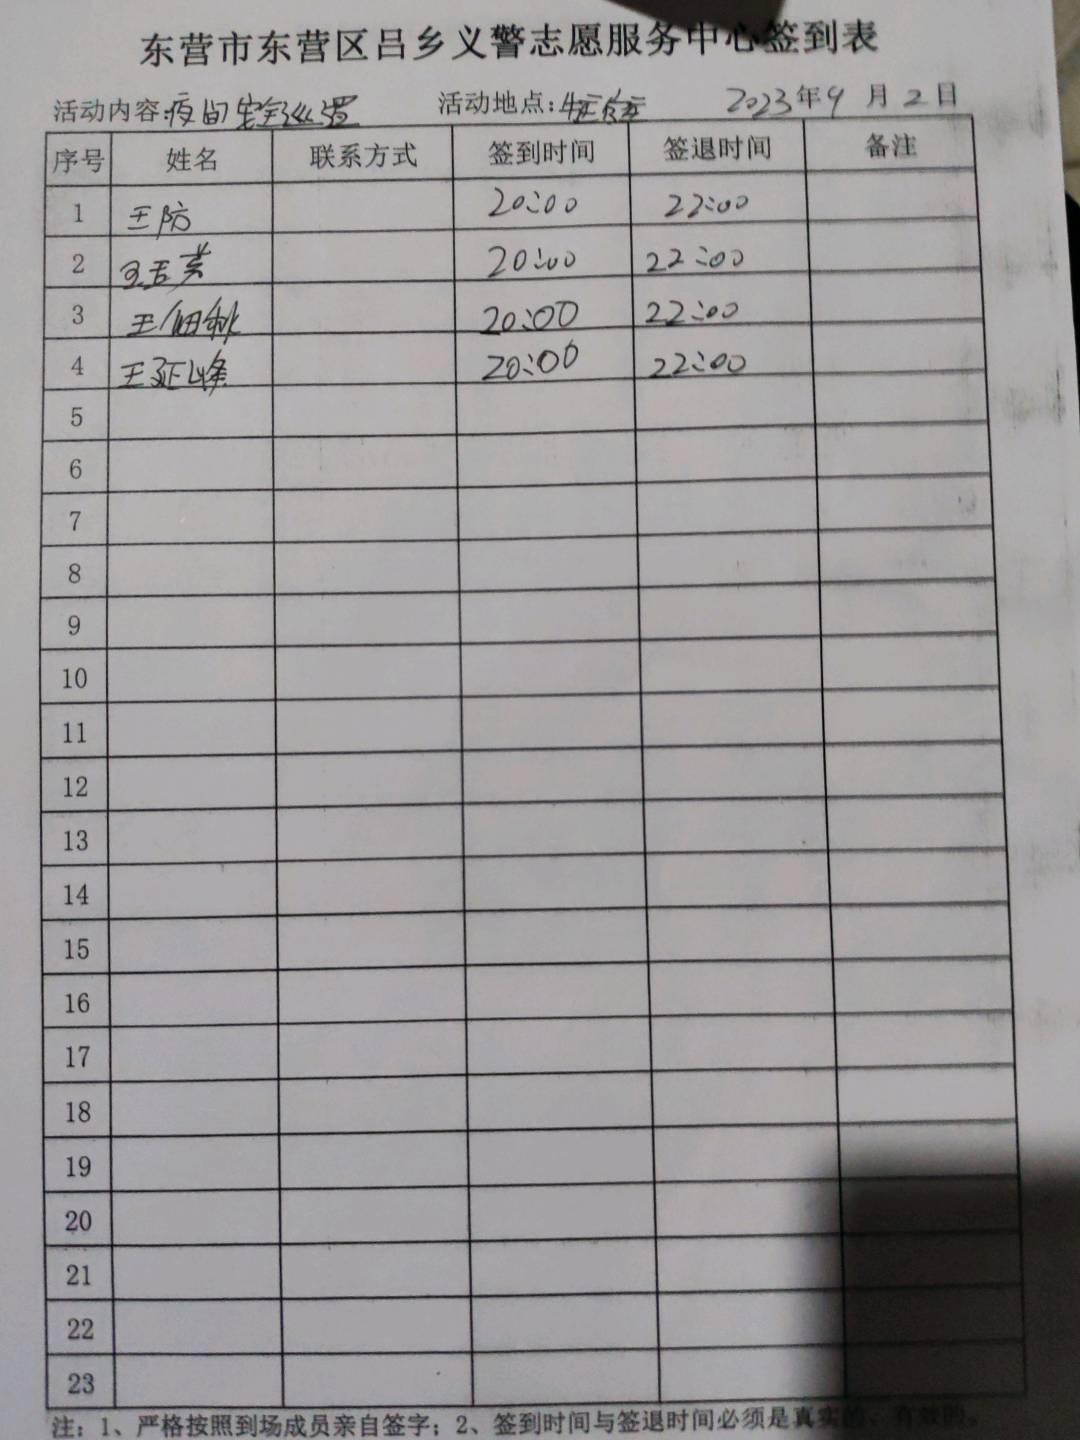 东营市东营区吕乡义警志愿服务中心签到表
活动内容:夜间安全巡逻 活动地点: 2023年9月2日
序号 姓名 联系方式 签到时间 签退时间 备注
1 王防 20:00 22:00
2 20:00 22:00
3 王佃秋 20:00 22:00
4 王延峰 20:00 22:00
5
6
7
8
9
10
11
12
13
14
15
16
17
18
19
20
21
22
23
注：1、严格按照到场成员亲自签字；2、签到时间与签退时间必须是真实的、有效的。